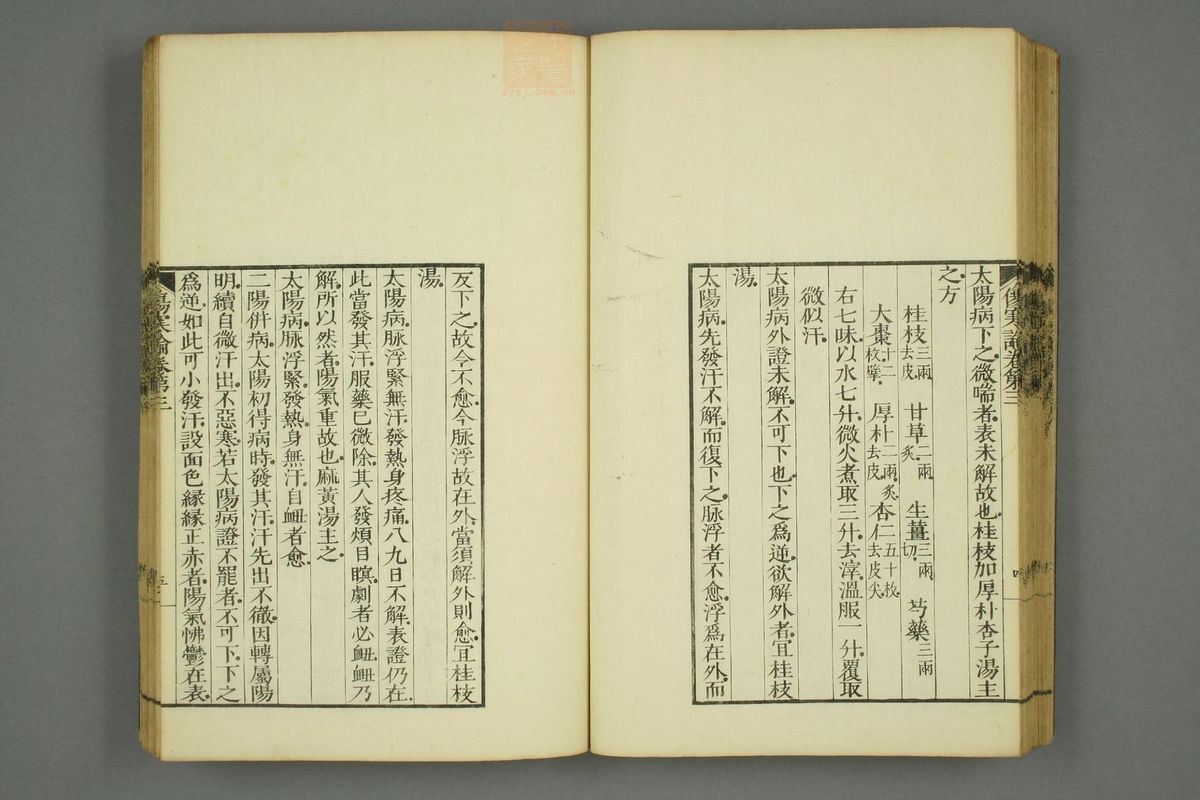 太陽病下之。微喘者。表未解故也。桂枝加厚朴杏子湯主
之。方
桂枝三兩去皮 甘草二兩炙。 生薑三兩切。 芍藥三兩
大棗十二枚擘。 厚朴二兩。炙去皮。 杏仁五十枚。去皮尖。
右七味。以水七升。微火煮取三升。去滓。溫服一升。覆取
微似汗。
太陽病外證未解。不可下也。下之爲逆。欲解外者。宜桂枝
湯。
太陽病。先發汗不解。而復下之。脉浮者不愈。浮爲在外。而
反下之。故令不愈。今脉浮故在外。當須解外則愈。宜桂枝
湯。
太陽病。脉浮緊無汗。發熱身疼痛。八九日不解。表證仍在。
此當發其汗。服藥已微除。其人發煩目瞑。劇者必衄。衄乃
解。所以然者。陽氣重故也。麻黃湯主之。
太陽病。脉浮緊。發熱。身無汗。自衄者愈。
二陽併病。太陽初得病時。發其汗。汗先出不徹。因轉屬陽
明。續自微汗出。不惡寒。若太陽病證不罷者。不可下。下之
爲逆。如此可小發汗。設面色緣緣正赤者。陽氣怫鬱在表。
傷寒論卷第三
傷寒論卷第三
zysj.com.cn